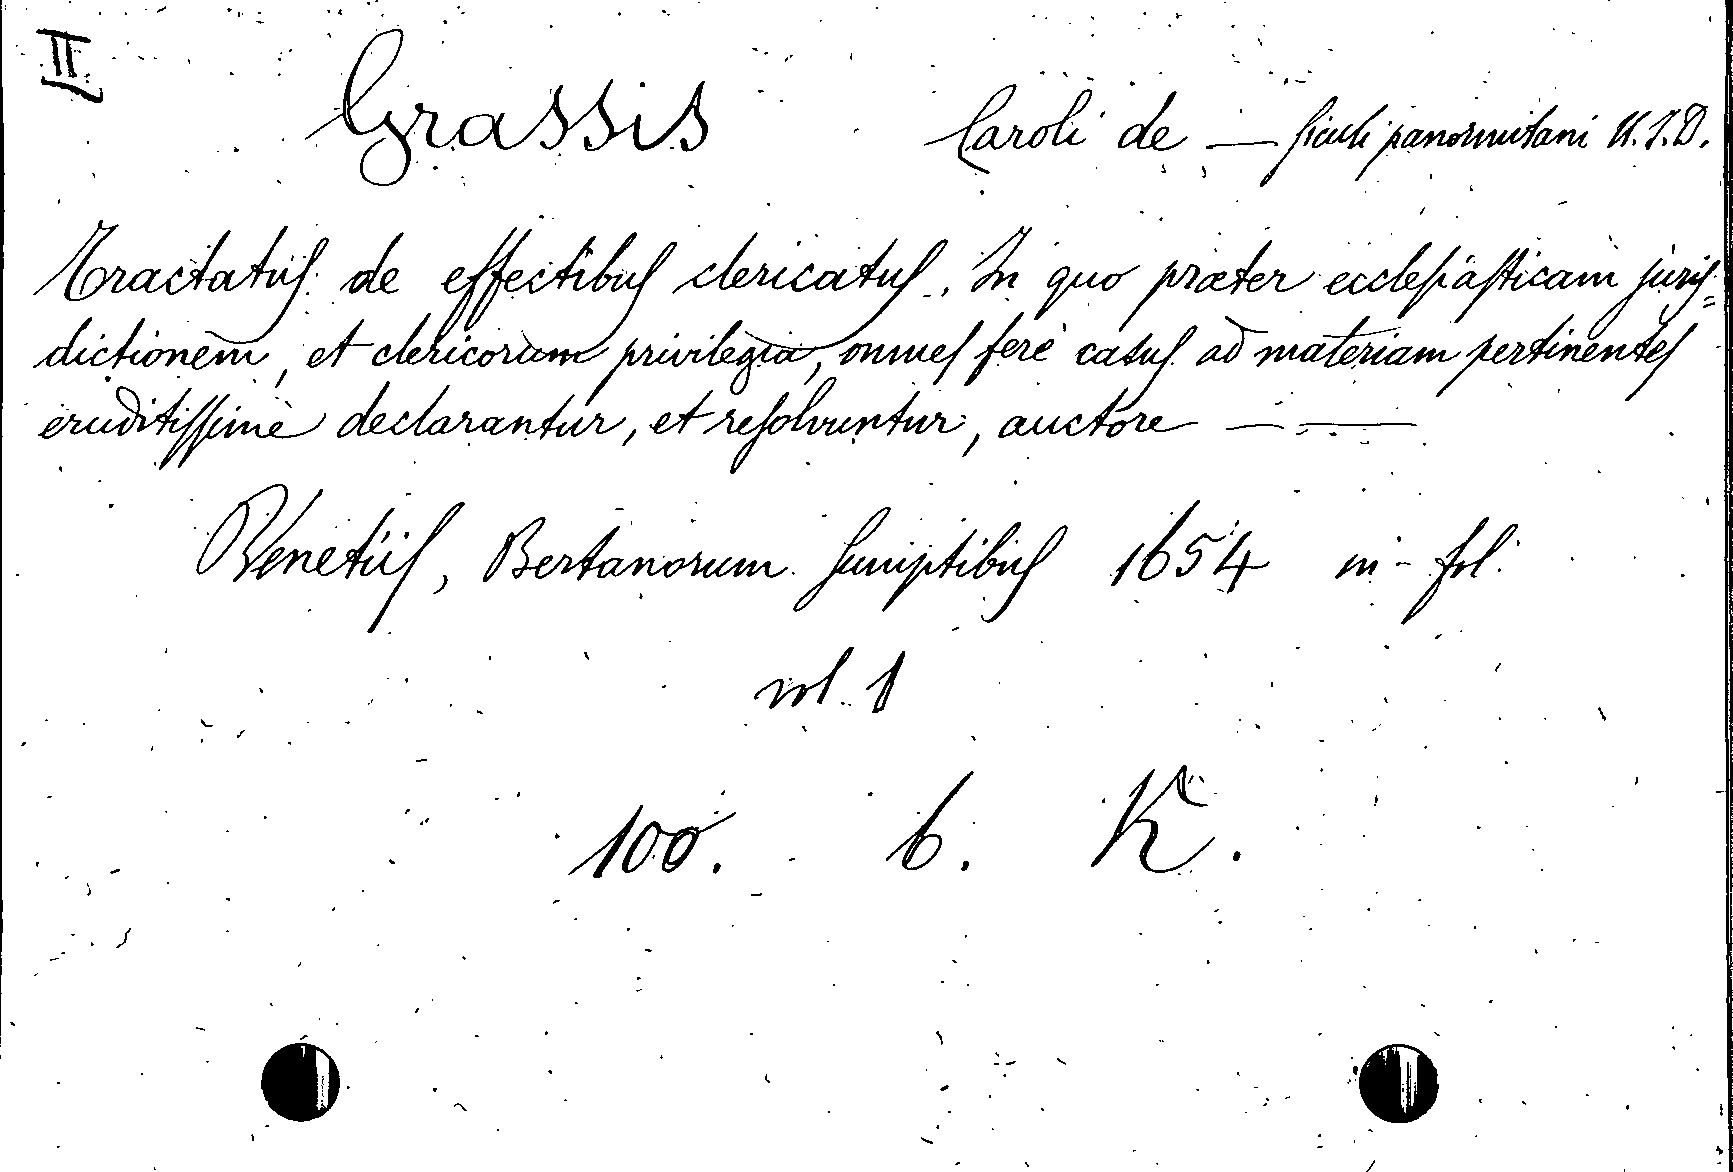 II
Grassis Caroli de — siculi panormitani U.I.D.
Tractatus de effectibus clericatus. In quo præter ecclesiasticam juris=
dictionem, et clericorum privilegia, omnes ferè casus ad materiam pertinentes
eruditissimè declarantur, et resolvuntur, auctore — —
Venetiis, Bertanorum sumptibus 1654 in-fol.
vol. 1
100. 6. K.